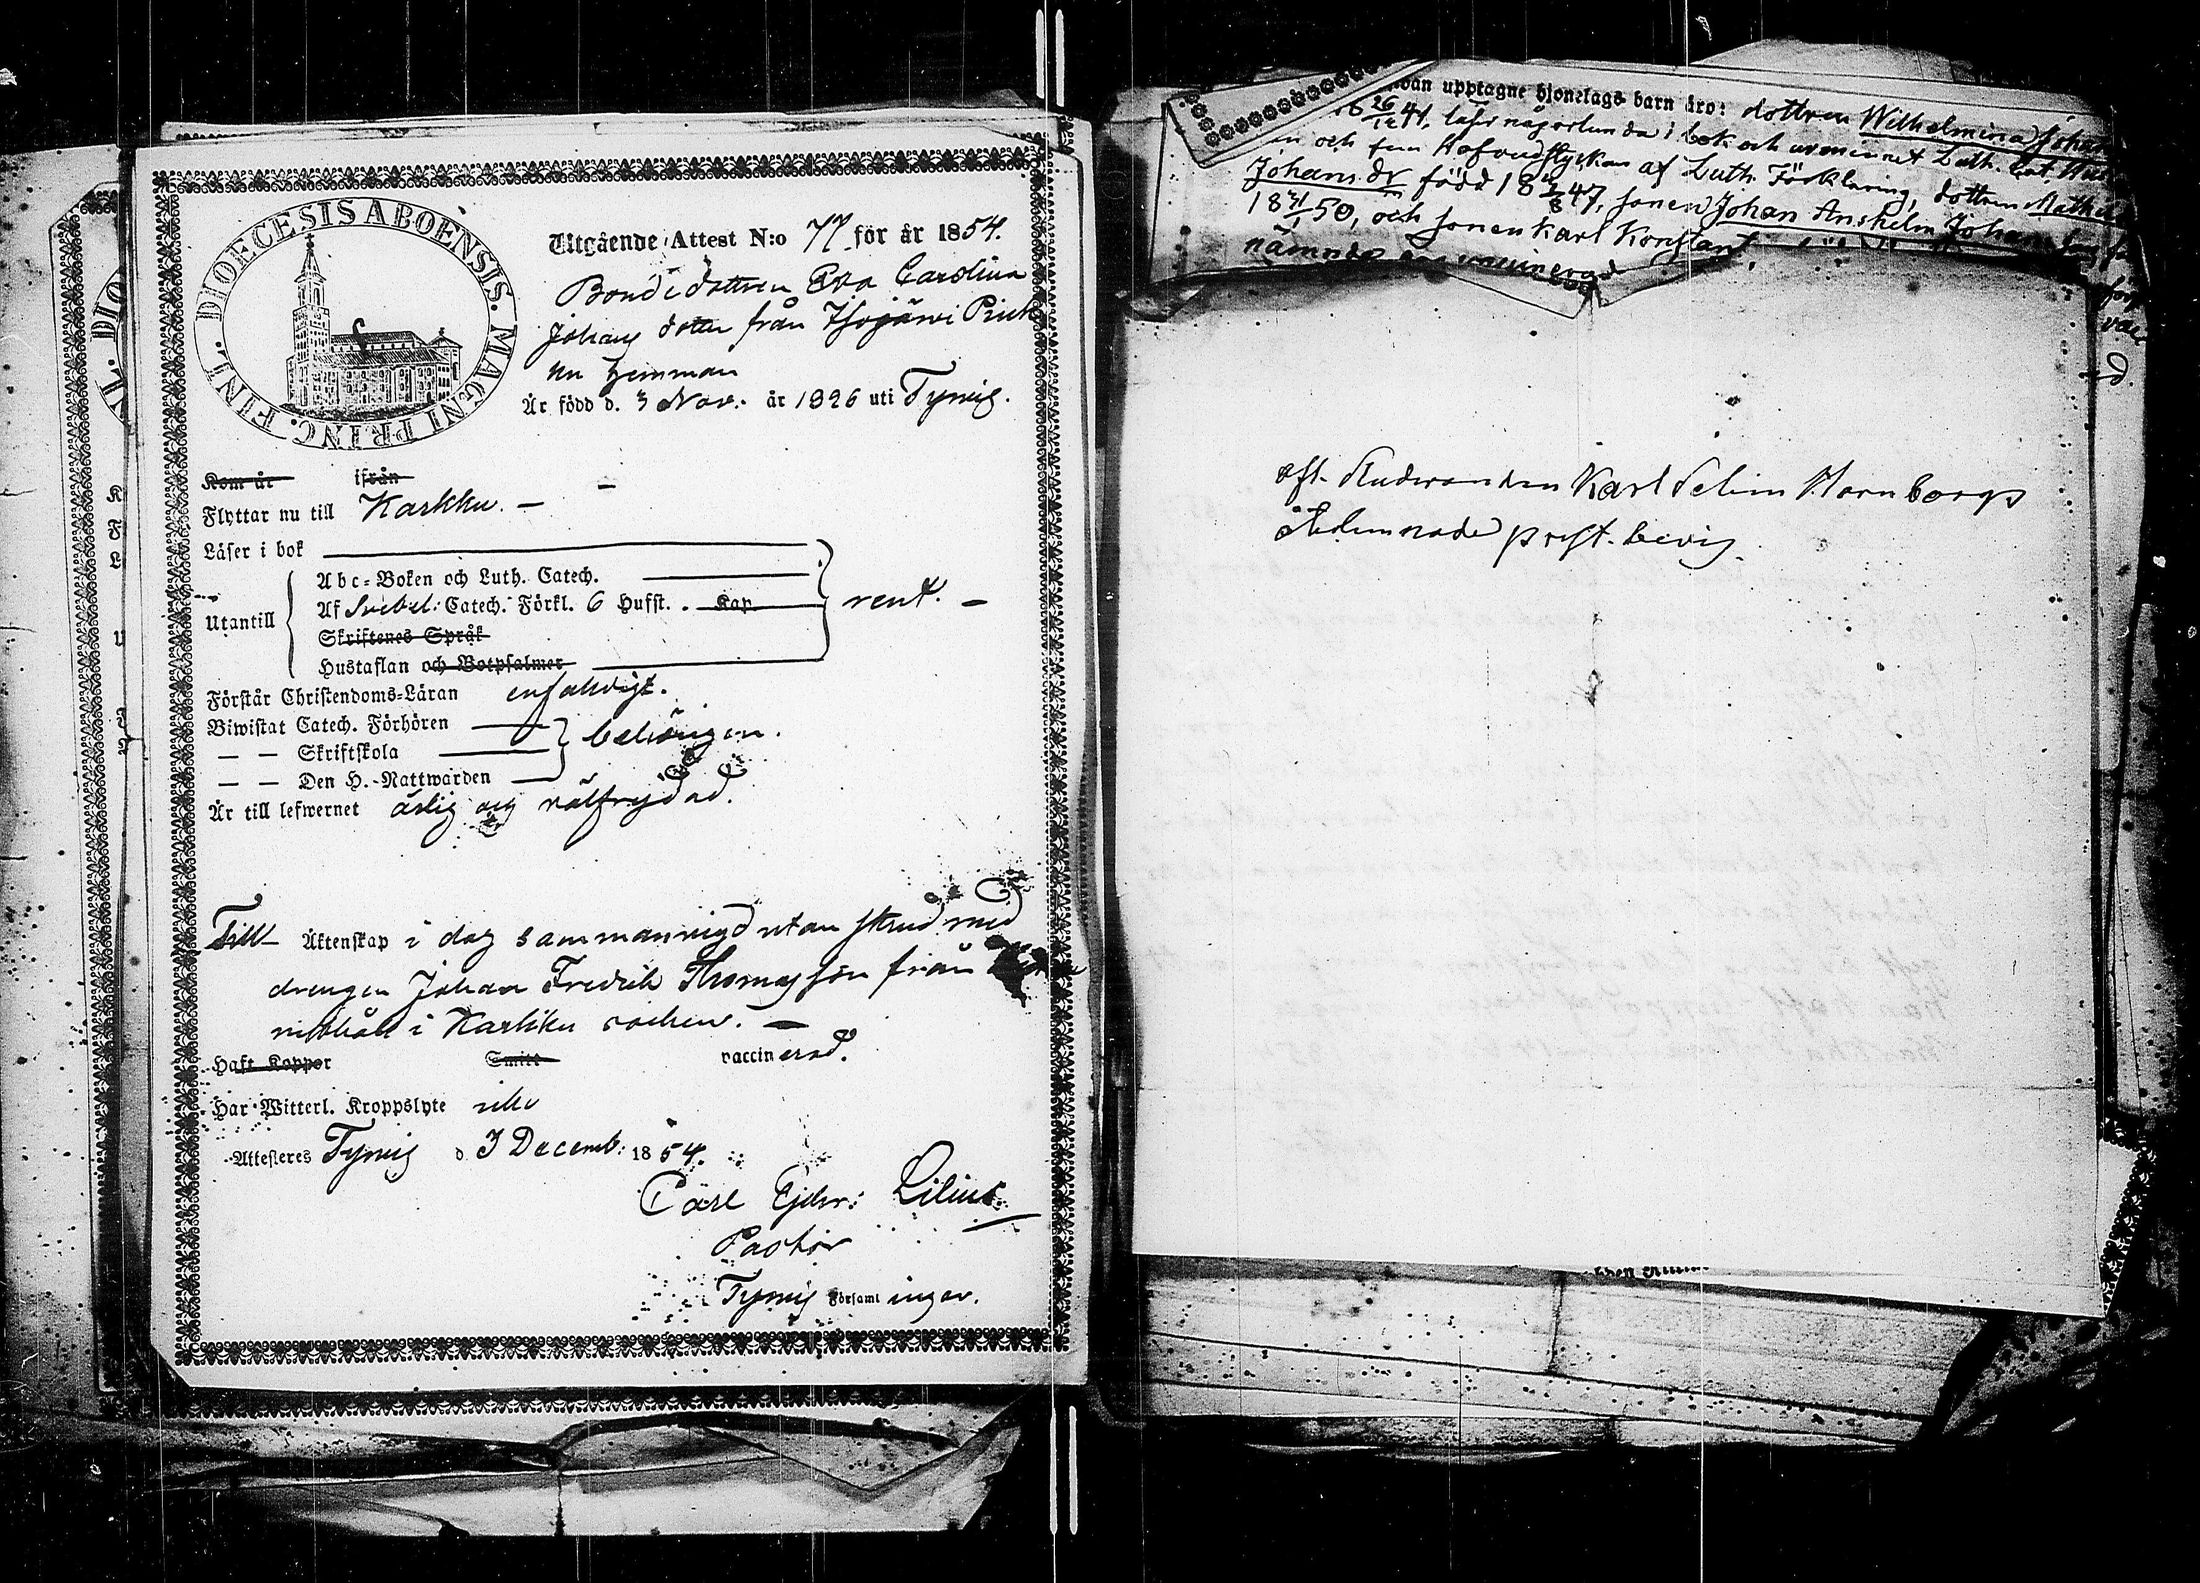 DIOECESIS ABOENSIS. MAGNI PRINC. FINL.
Utgående Attest N:o 77 för år 1854.
Bondedottren Eva Carolina
Johans dotter från Isojärwi
hemman
Är född d. 3 Nov: år 1826 uti Tyrvis.
Kom år ifrån
Flyttar nu till Karkku. —
Läser i bok
Utantill
Abc-Boken och Luth. Catech.
Af Svebel: Catech. Förkl. 6 Hufst. . Kap. rent. —
Skriftenes Språk
Hustaflan och Botpsalmer
Förstår Christendoms-Läran enfaldigt.
Biwistat Catech. Förhören
— — Skriftskola behörigen.
— — Den H. Nattwarden
Är till lefwernet ärlig och välfrejdad.
Till Äktenskap i dag sammanvigd utan skrud med
drengen Johan Fredrik Thomasson från
i Karkku socken. —
Haft Koppor Smitt vaccinerad.
Har Witterl. Kroppslyte icke
Attesteres Tyrvis d. 3 Decemb: 1854.
Carl Ejder: Lilius
Pastor
Tyrvis Församl ingar.
upptagne hjonelags barn äro: dottren Wilhelmina Johans
26/12 41, läser någorlunda i bok och urminnet Luth. Cat.
och fem Hofvudstycken af Luth Förklaring, dottren Mathilda
Johans dr född 18 /8 47, sonen Johan Anshelm Johans son
18 50, och sonen Karl Konstant,
nämnde vaccinerad
Studeranden Karl Selim Hornborgs
prest. bevis.